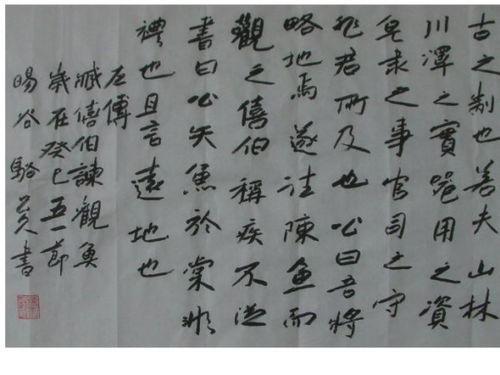 古之制也若夫山林
川澤之實器用之資
皂隶之事官司之守
非君所及也公曰吾將
略地焉遂往陳魚而
觀之僖伯稱疾不從
書曰公矢魚於棠非
禮也且言遠地也
左傳
臧僖伯諫觀魚
歲在癸巳五一節
暘谷駱書